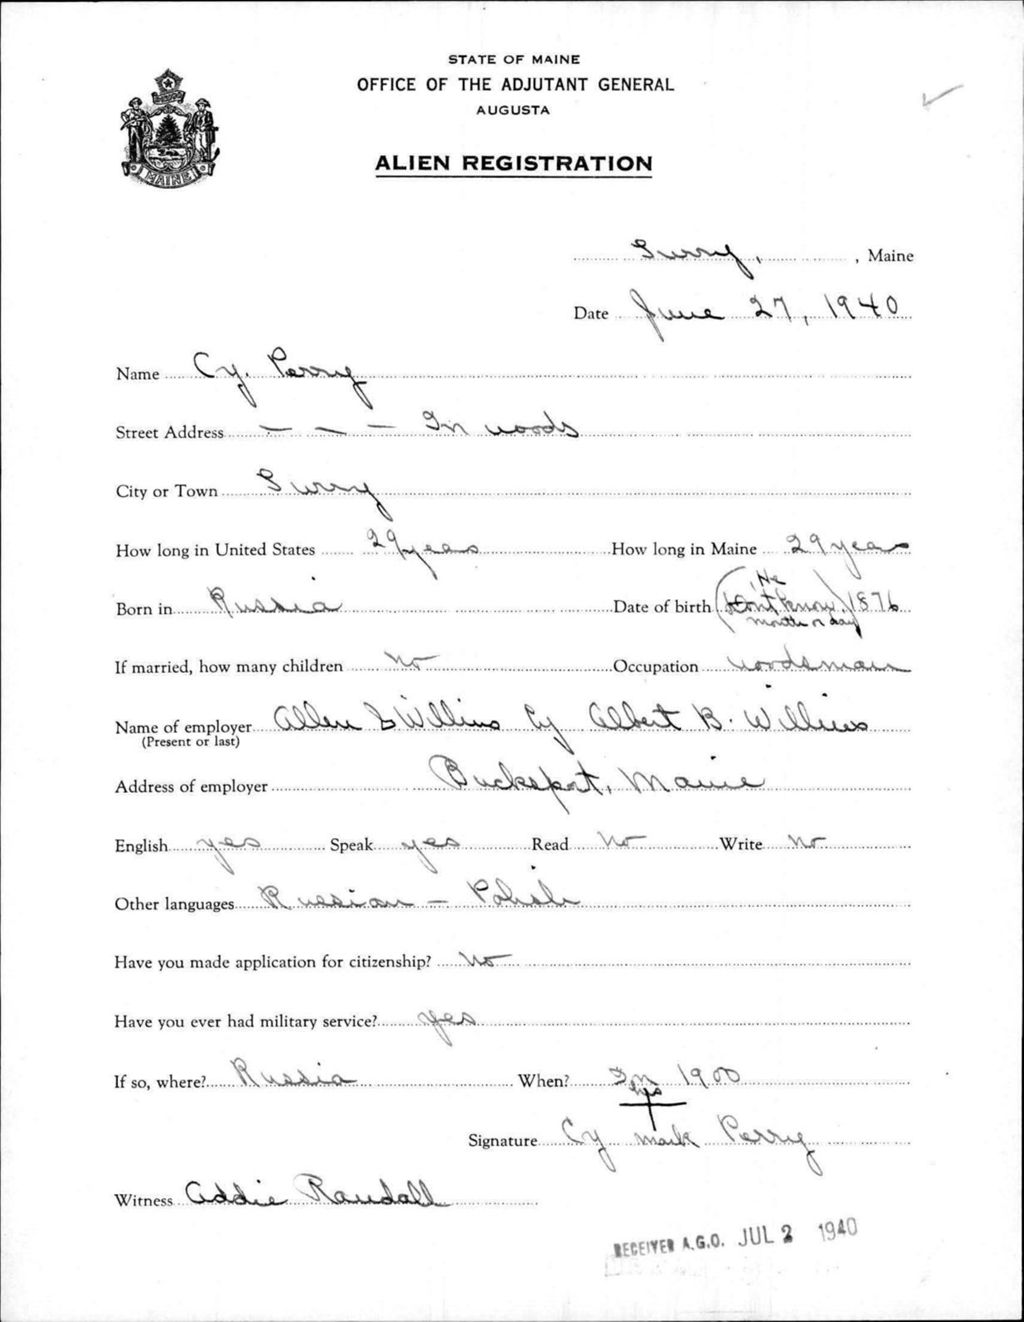 STATE OF MAINE
OFFICE OF THE ADJUTANT GENERAL
AUGUSTA
ALIEN REGISTRATION
MAINE
Surry, , Maine
Date June 27, 1940
Name Cy. Perry
Street Address — — — In woods
City or Town Surry
How long in United States 29 years How long in Maine 29 years
Born in Russia Date of birth (He dont know month or day) 1876
If married, how many children no Occupation woodsman
Name of employer Allen & Willins Albert B. Willins
(Present or last)
Address of employer Bucksport, Maine
English yes Speak yes Read No Write No
Other languages Russian - Polish
Have you made application for citizenship? No
Have you ever had military service? yes
If so, where? Russia When? In 1900
his
Signature Cy mark Perry
Witness Addie Randall
RECEIVED A.G.O. JUL 2 1940